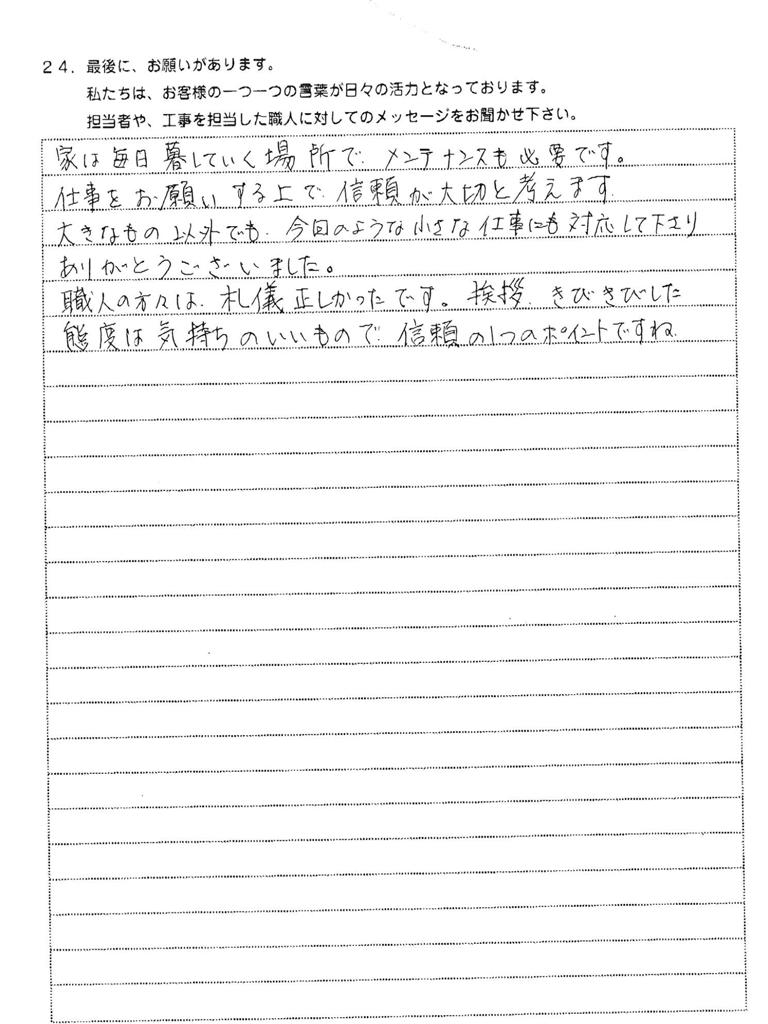 24．最後に、お願いがあります。
私たちは、お客様の一つ一つの言葉が日々の活力となっております。
担当者や、工事を担当した職人に対してのメッセージをお聞かせ下さい。
家は毎日暮していく場所で、メンテナンスも必要です。
仕事をお願いする上で、信頼が大切と考えます。
大きなもの以外でも、今回のような小さな仕事にも対応して下さり
ありがとうございました。
職人の方々は、礼儀正しかったです。挨拶、きびきびした
態度は気持ちのいいもので、信頼の1つのポイントですね。